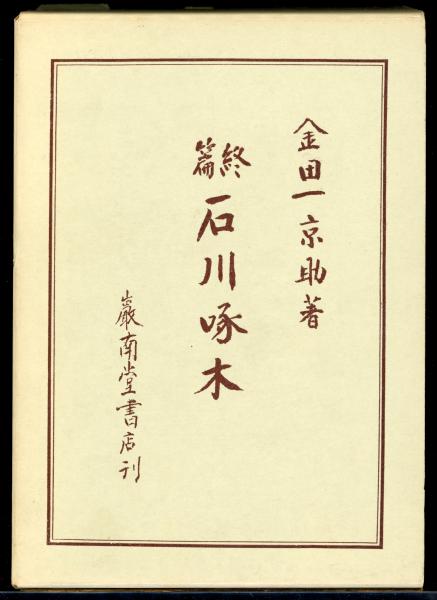 金田一京助著
終篇 石川啄木
巌南堂書店刊